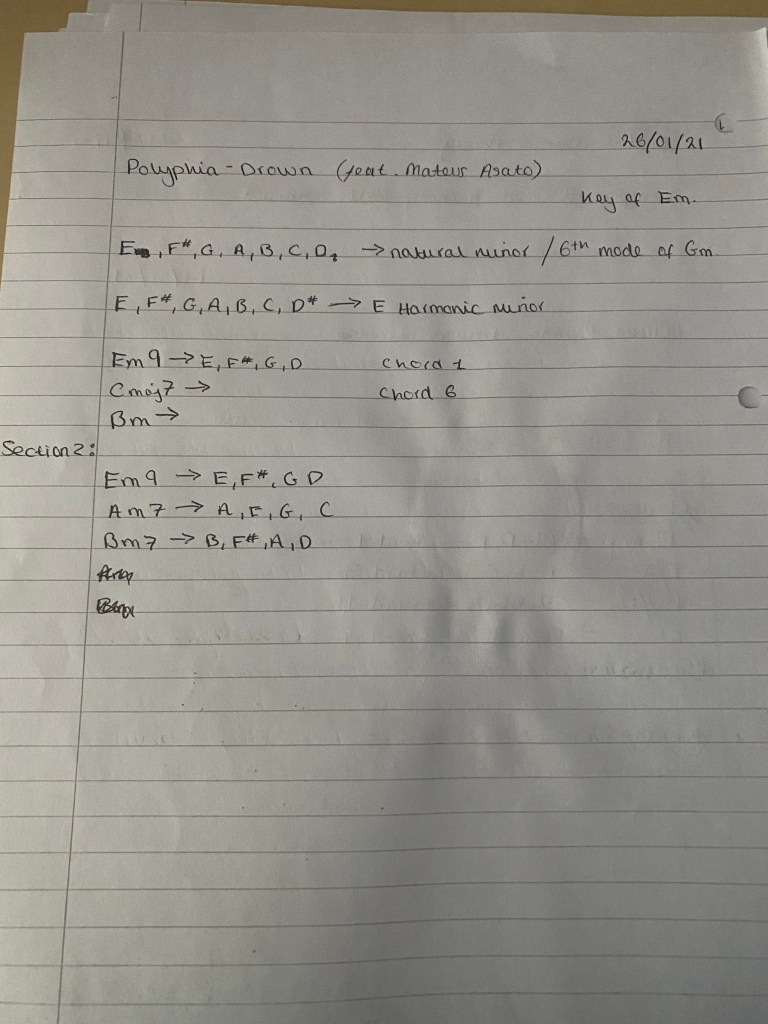 26/01/21
Polyphia - Drown (feat. Mateus Asato)
Key of Em.
E, F#, G, A, B, C, D, → natural minor / 6th mode of Gm
E, F#, G, A, B, C, D# → E Harmonic minor
Em9 → E, F#, G, D chord 1
Cmaj7 → chord 6
Bm →
Section 2:
Em9 → E, F#, G D
Am7 → A, E, G, C
Bm7 → B, F#, A, D